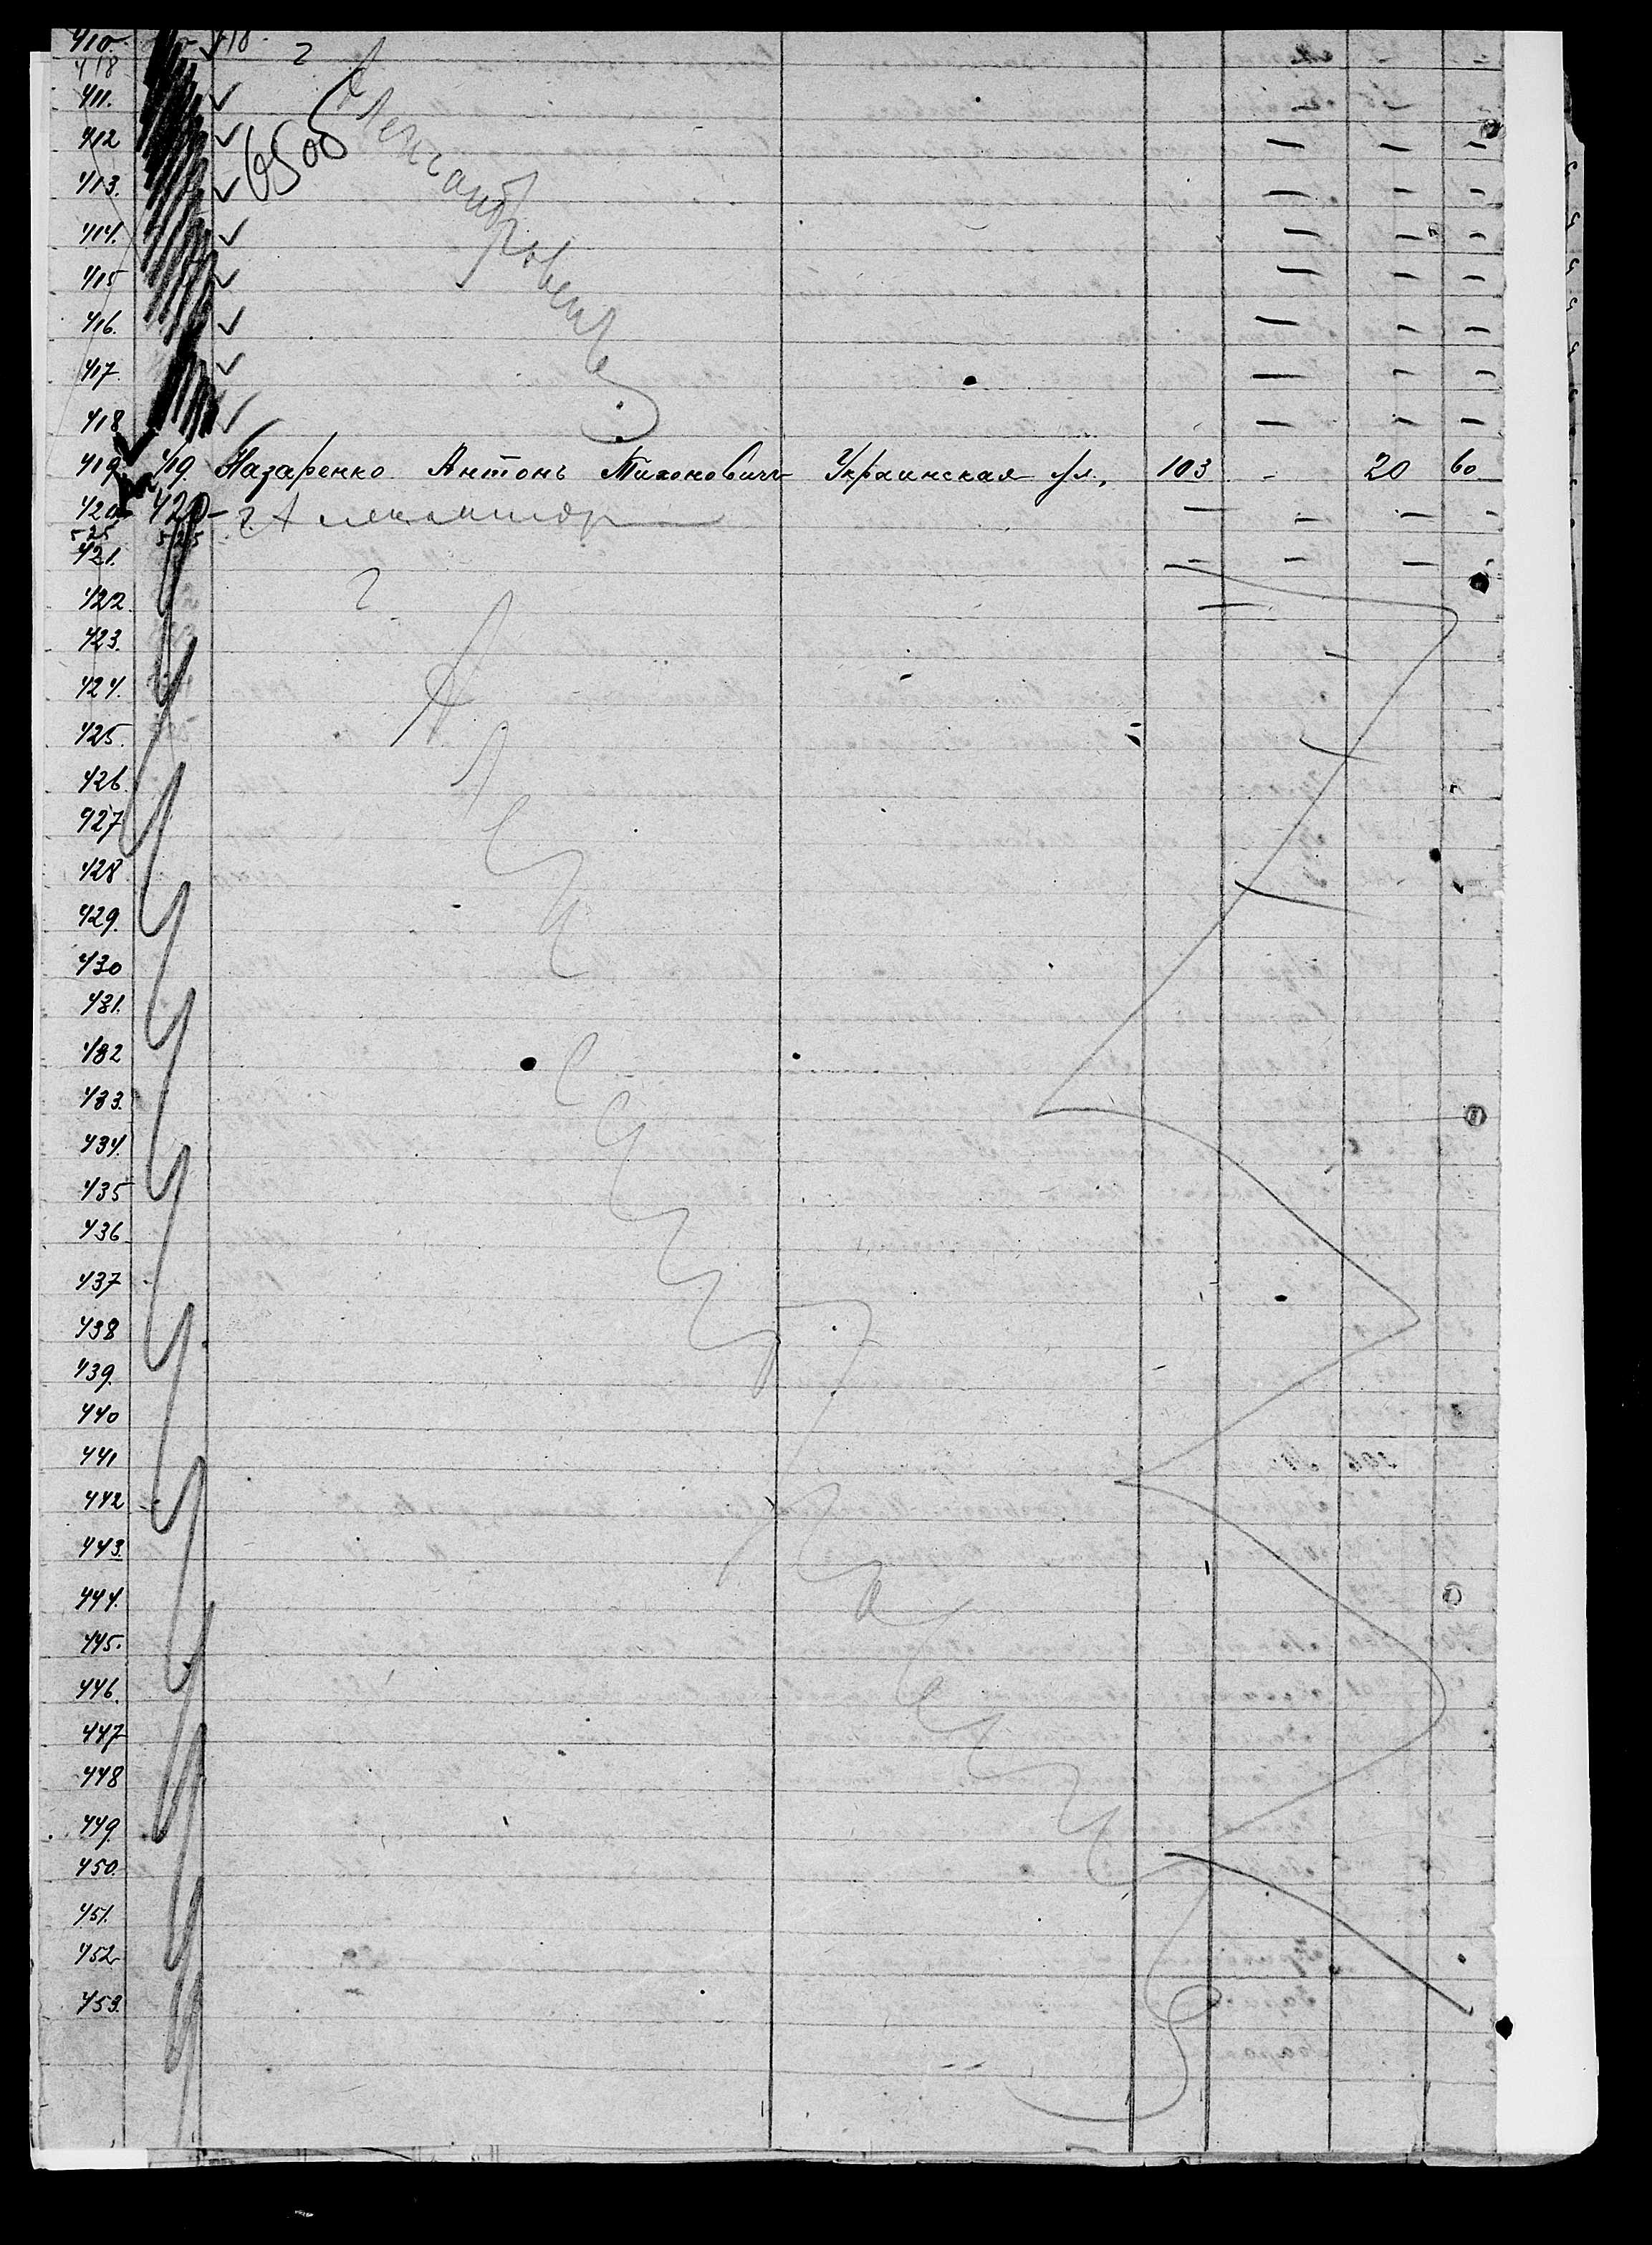 410. 418.
418
411.
412
413. 6500
414. Александровск
415
416.
417.
418
419 419. Назаренко Антонъ Тихоновичъ Украинская ул. 103 - 20 60
420 420
525 525
421.
422.
423.
424.
425.
426.
427
428
429.
430
431.
432
433.
434.
435
436.
437
438
439.
440
441
442
443.
444.
445.
446.
447
448
449
450.
451.
452
453.